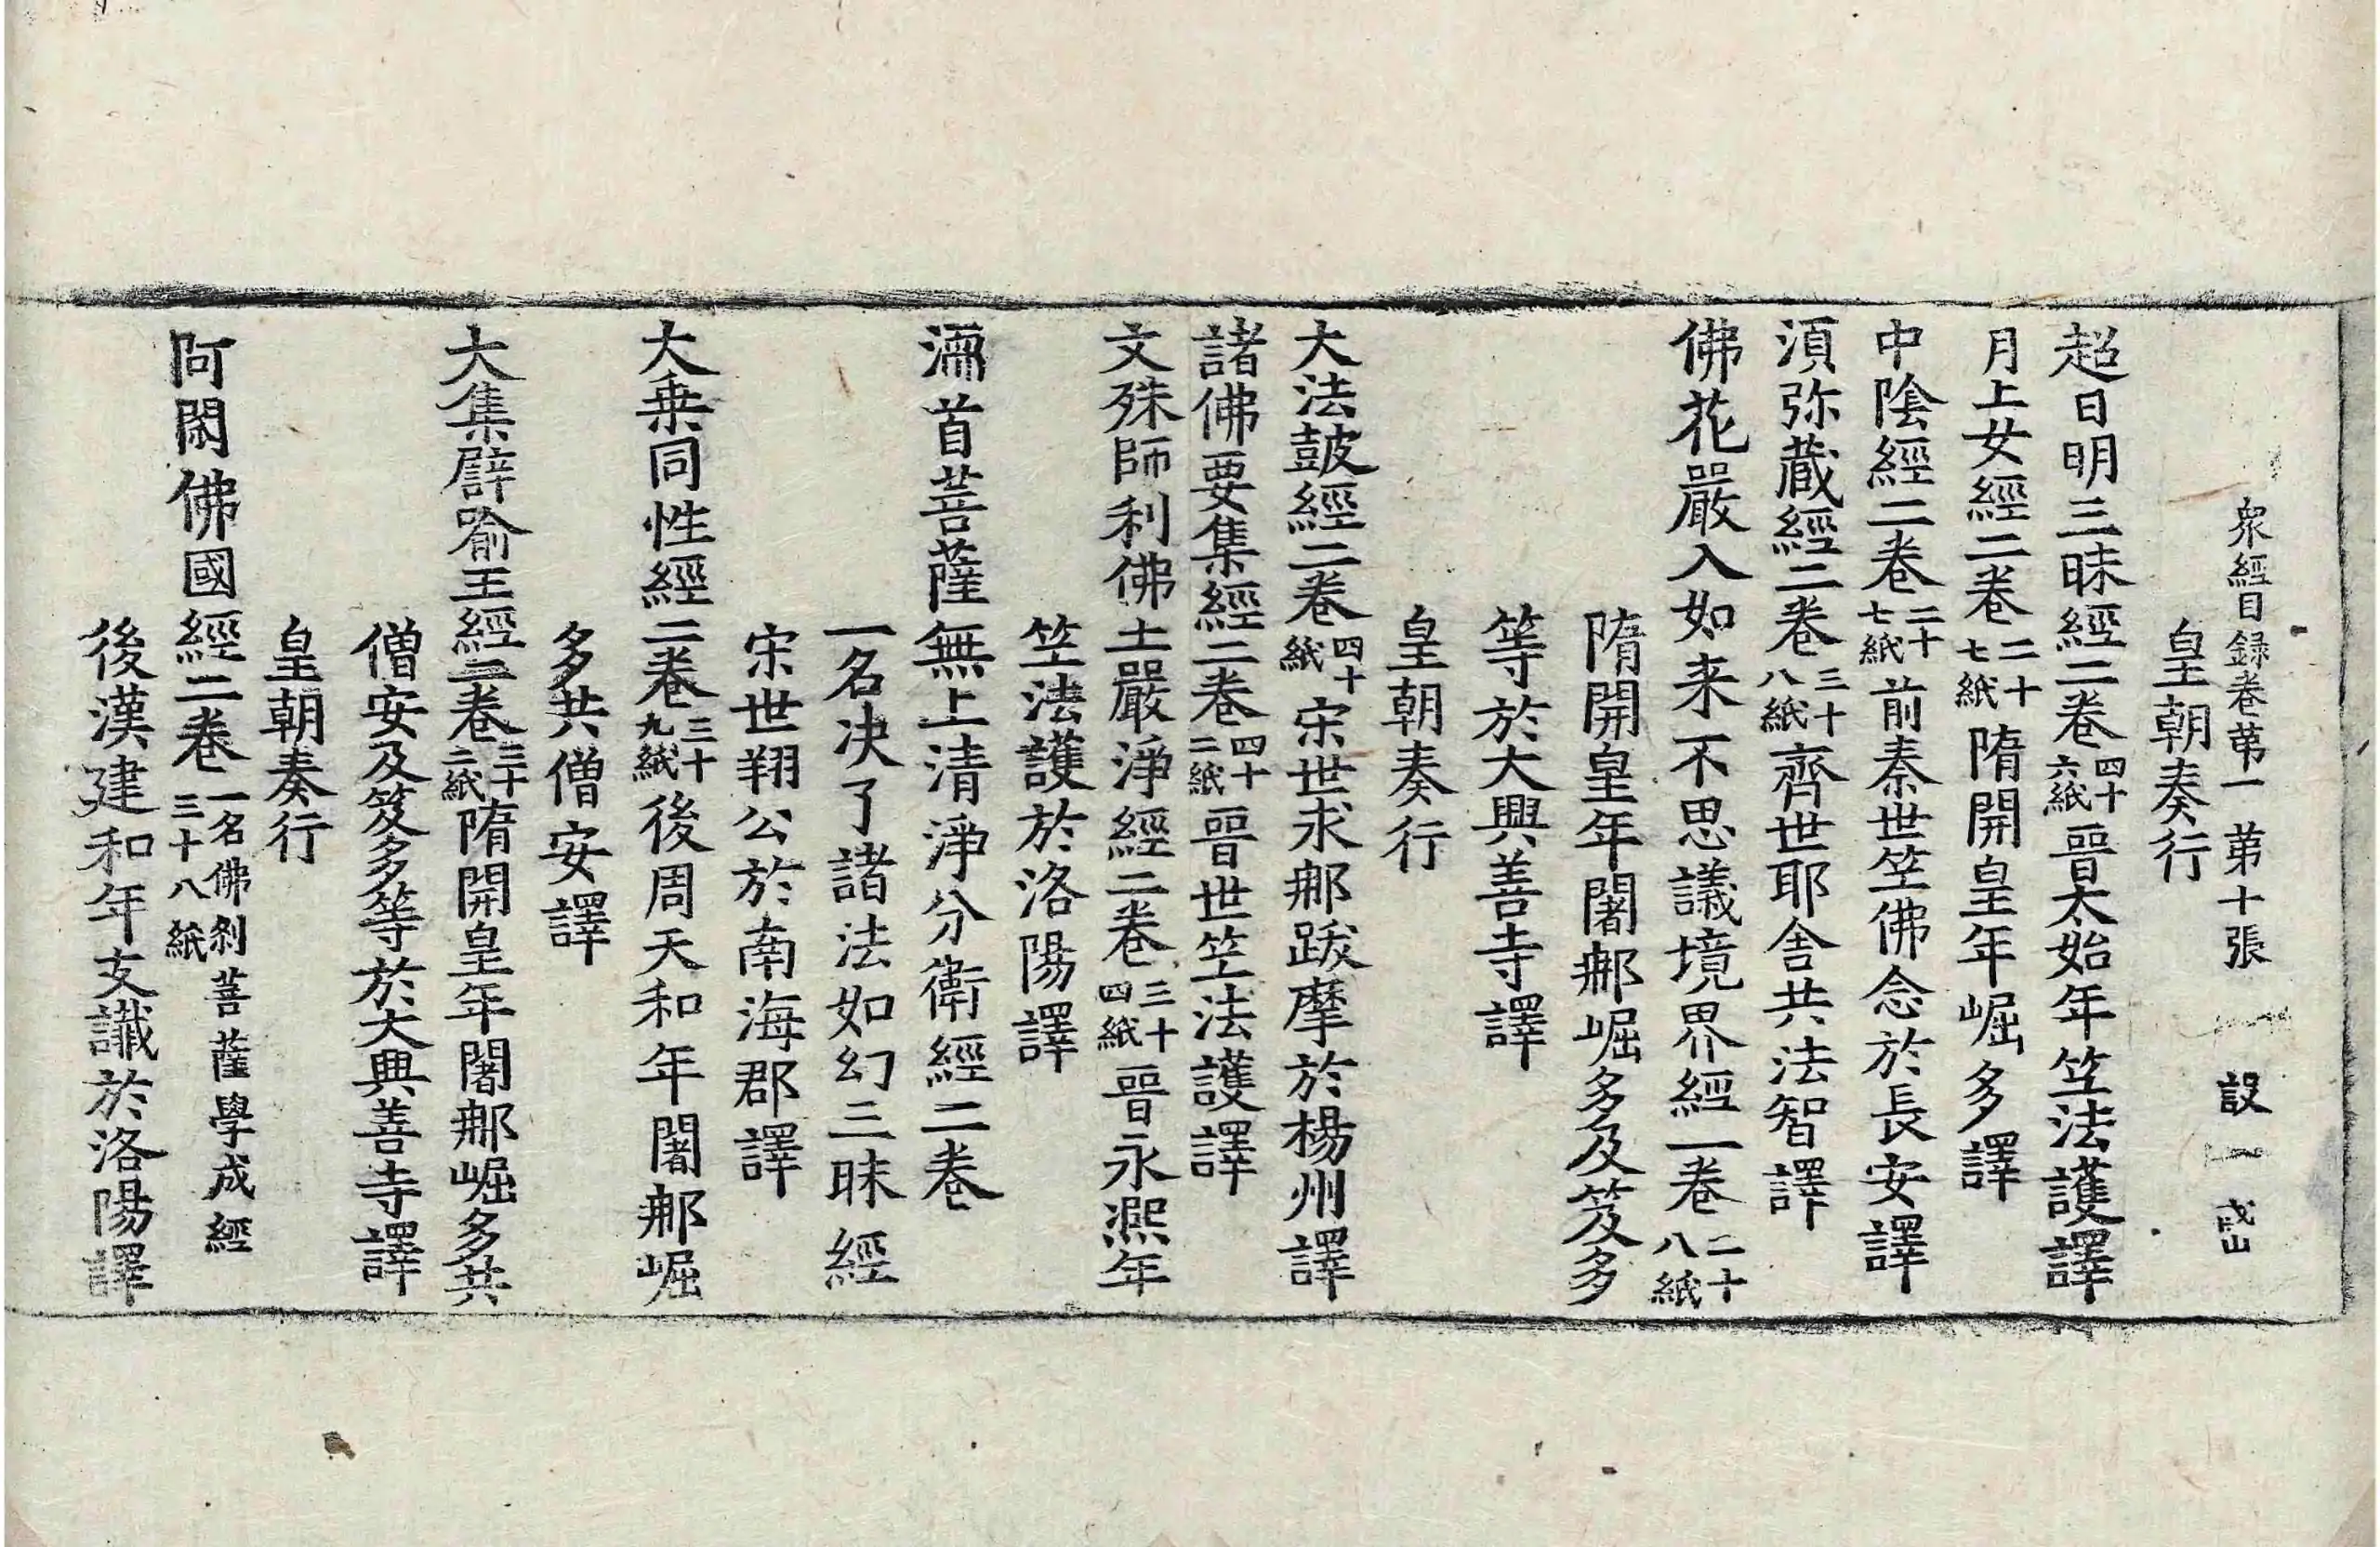 衆經目録卷苐一 苐十張 設
皇朝奏行
超日明三昧經二卷四十六紙晉太始年竺法護譯
月上女經二卷二十七紙隋開皇年崛多譯
中陰經二卷二十七紙前秦世竺佛念於長安譯
湏弥蔵經二卷三十八紙齊世耶舍共法智譯
佛花嚴入如来不思議境界經一卷二十八紙
隋開皇年闍郍崛多及笈多
等於大興善寺譯
皇朝奏行
大法皷經二卷四十紙宋世求郍跋摩於楊州譯
諸佛要集經二卷四十二紙晉世竺法護譯
文殊師利佛土嚴淨經二卷三十四紙晉永熈年
竺法護於洛陽譯
濡首菩薩無上清淨分衛經二卷
一名决了諸法如幻三昧經
宋世翔公於南海郡譯
大乗同性經二卷三十九紙後周天和年闍郍崛
多共僧安譯
大集譬喻王經二卷三十二紙隋開皇年闍郍崛多共
僧安及笈多等於大興善寺譯
皇朝奏行
阿閦佛國經二卷一名佛刹菩薩學成經三十八紙
後漢建和年支讖於洛陽譯